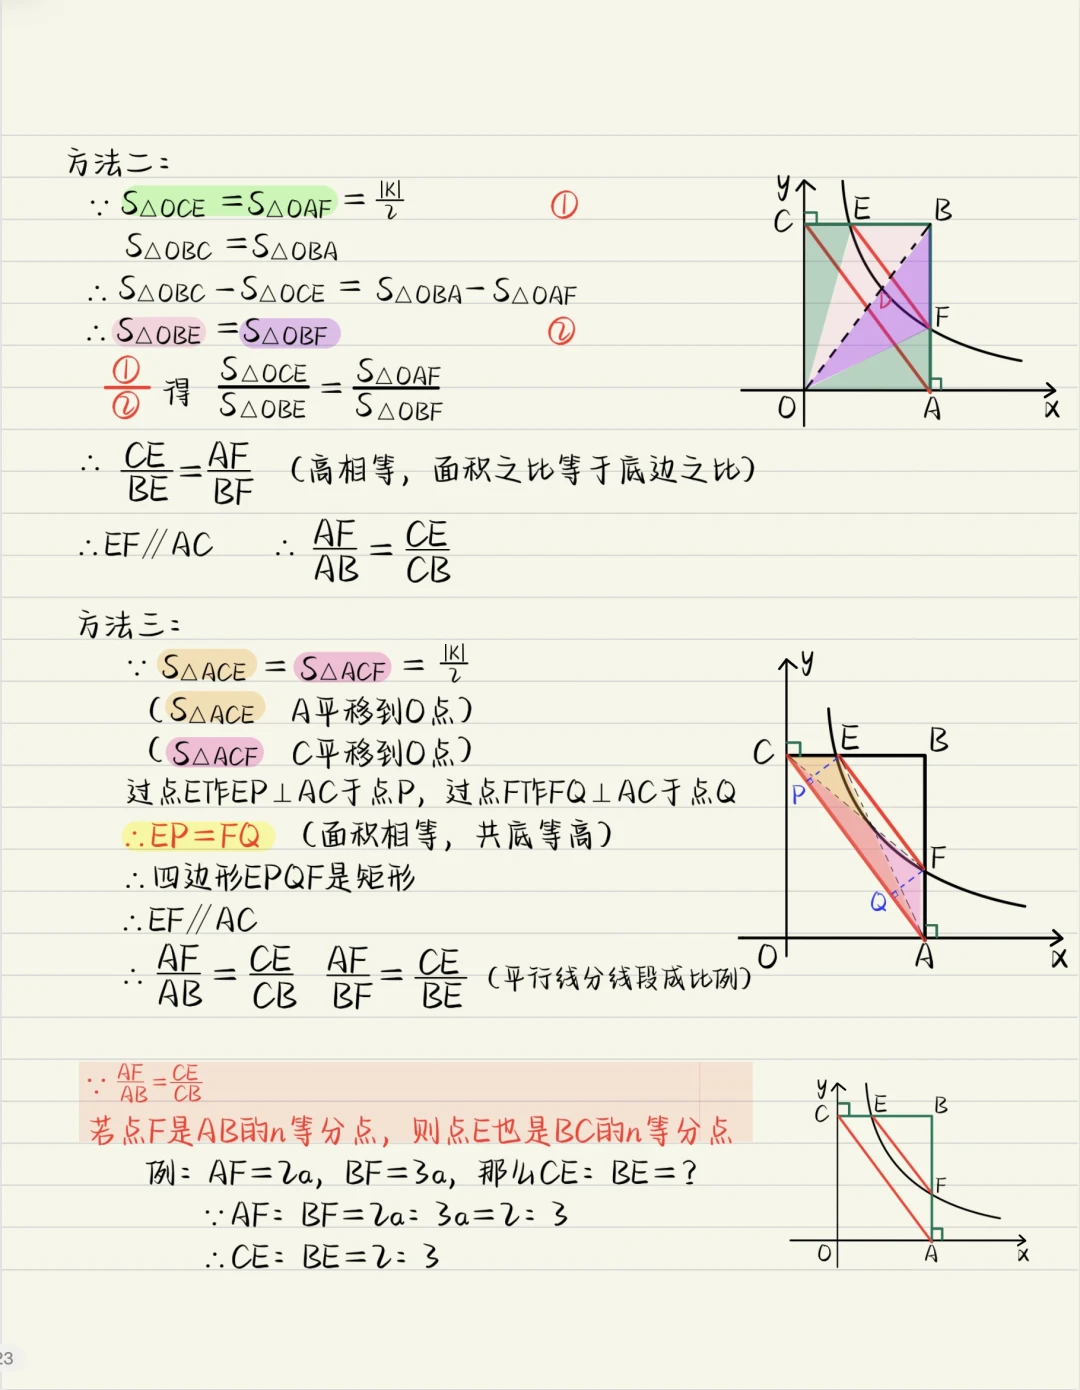 方法二：
∵ S△OCE = S△OAF = |K|/2 ①
S△OBC = S△OBA
∴ S△OBC - S△OCE = S△OBA - S△OAF
∴ S△OBE = S△OBF ②
①/② 得 S△OCE/S△OBE = S△OAF/S△OBF
∴ CE/BE = AF/BF （高相等，面积之比等于底边之比）
∴ EF∥AC ∴ AF/AB = CE/CB
y
C
E
B
D
F
O
A
x
方法三：
∵ S△ACE = S△ACF = |K|/2
（S△ACE A平移到O点）
（S△ACF C平移到O点）
过点E作EP⊥AC于点P，过点F作FQ⊥AC于点Q
∴ EP=FQ （面积相等，共底等高）
∴ 四边形EPQF是矩形
∴ EF∥AC
∴ AF/AB = CE/CB AF/BF = CE/BE （平行线分线段成比例）
y
C
E
B
P
F
Q
O
A
x
∵ AF/AB = CE/CB
若点F是AB的n等分点，则点E也是BC的n等分点
例：AF=2a，BF=3a，那么CE：BE=？
∵ AF：BF=2a：3a=2：3
∴ CE：BE=2：3
y
C
E
B
F
O
A
x
23